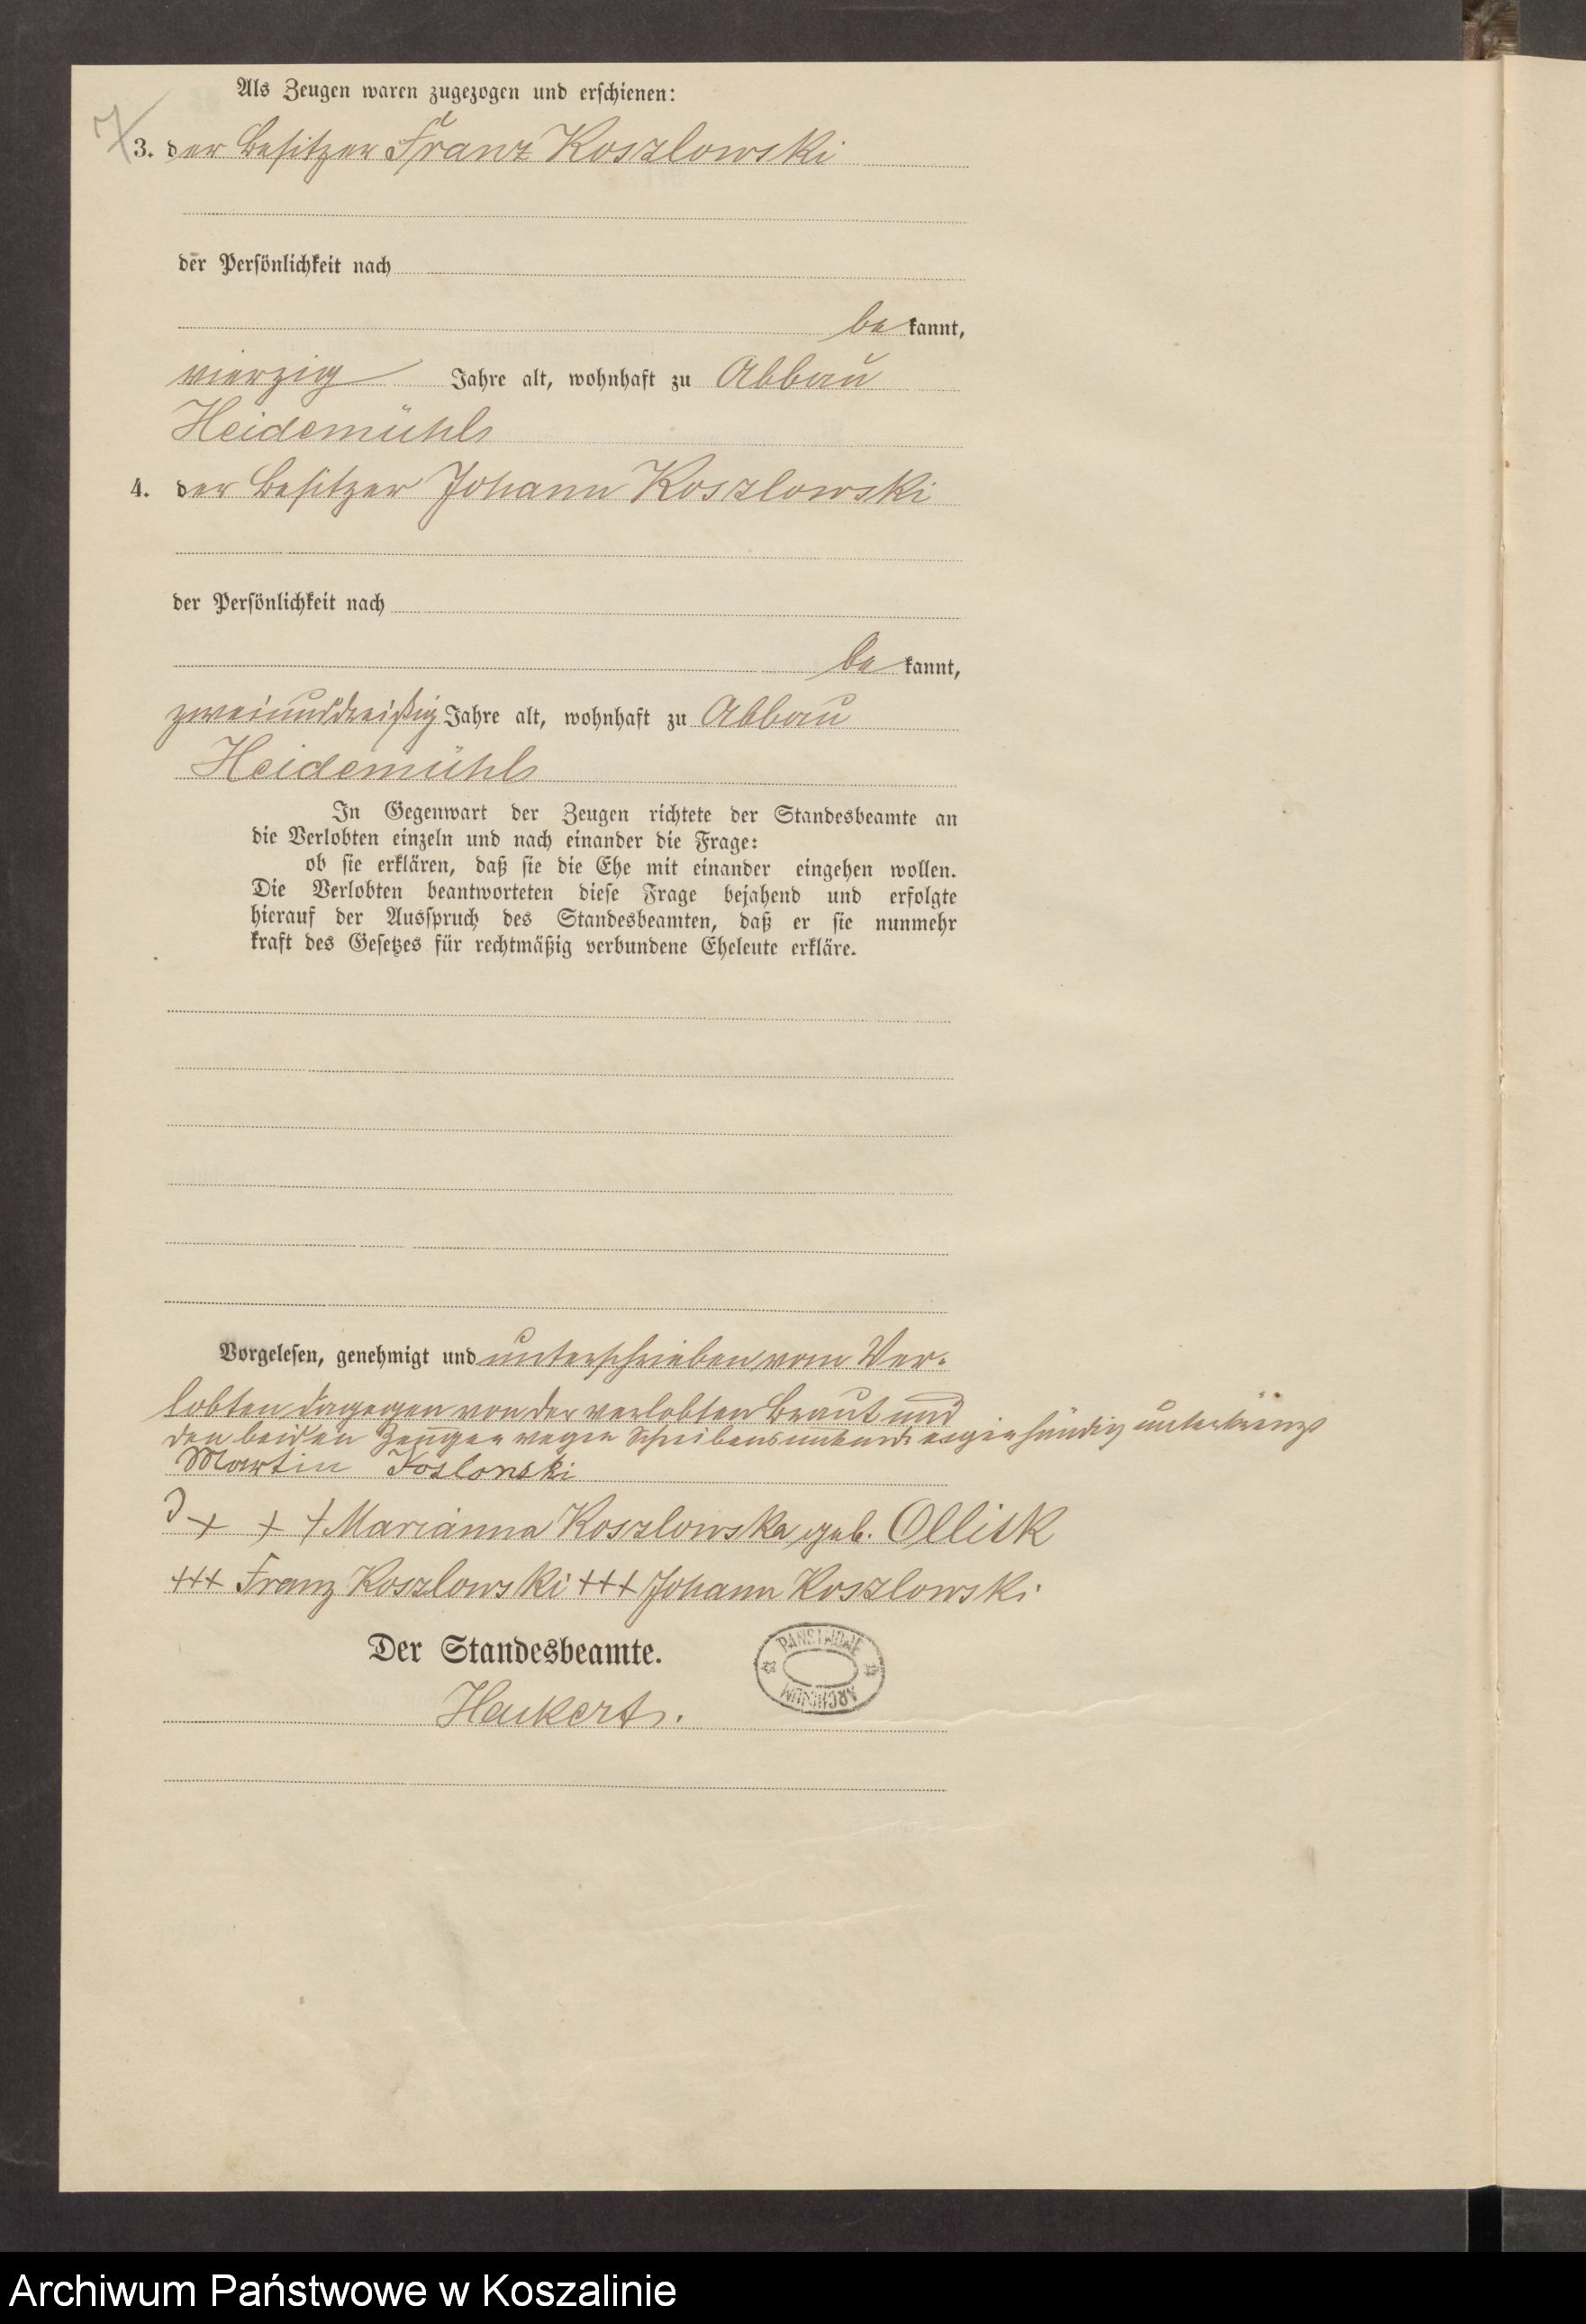 Als Zeugen waren zugezogen und erschienen:
7
3. der Besitzer Franz Koszlowski
der Persönlichkeit nach
be kannt,
vierzig Jahre alt, wohnhaft zu Abbau
Heidemühl
4. der Besitzer Johann Koszlowski
der Persönlichkeit nach
be kannt,
zweiunddreißig Jahre alt, wohnhaft zu Abbau
Heidemühl
In Gegenwart der Zeugen richtete der Standesbeamte an
die Verlobten einzeln und nach einander die Frage:
ob sie erklären, daß sie die Ehe mit einander eingehen wollen.
Die Verlobten beantworteten diese Frage bejahend und erfolgte
hierauf der Ausspruch des Standesbeamten, daß er sie nunmehr
kraft des Gesetzes für rechtmäßig verbundene Eheleute erkläre.
Vorgelesen, genehmigt und unterschrieben vom Ver-
lobten dagegen von der verlobten Braut und
den beiden Zeugen wegen Schreibensunkunde eigenhändig unterkreuzt
Martin Koslonski
+ + + Marianna Koszlowska geb. Ollisk
+++ Franz Koszlowski +++ Johann Koszlowski
Der Standesbeamte.
PAŃSTWOWE
ARCHIWUM
Archiwum Państwowe w Koszalinie